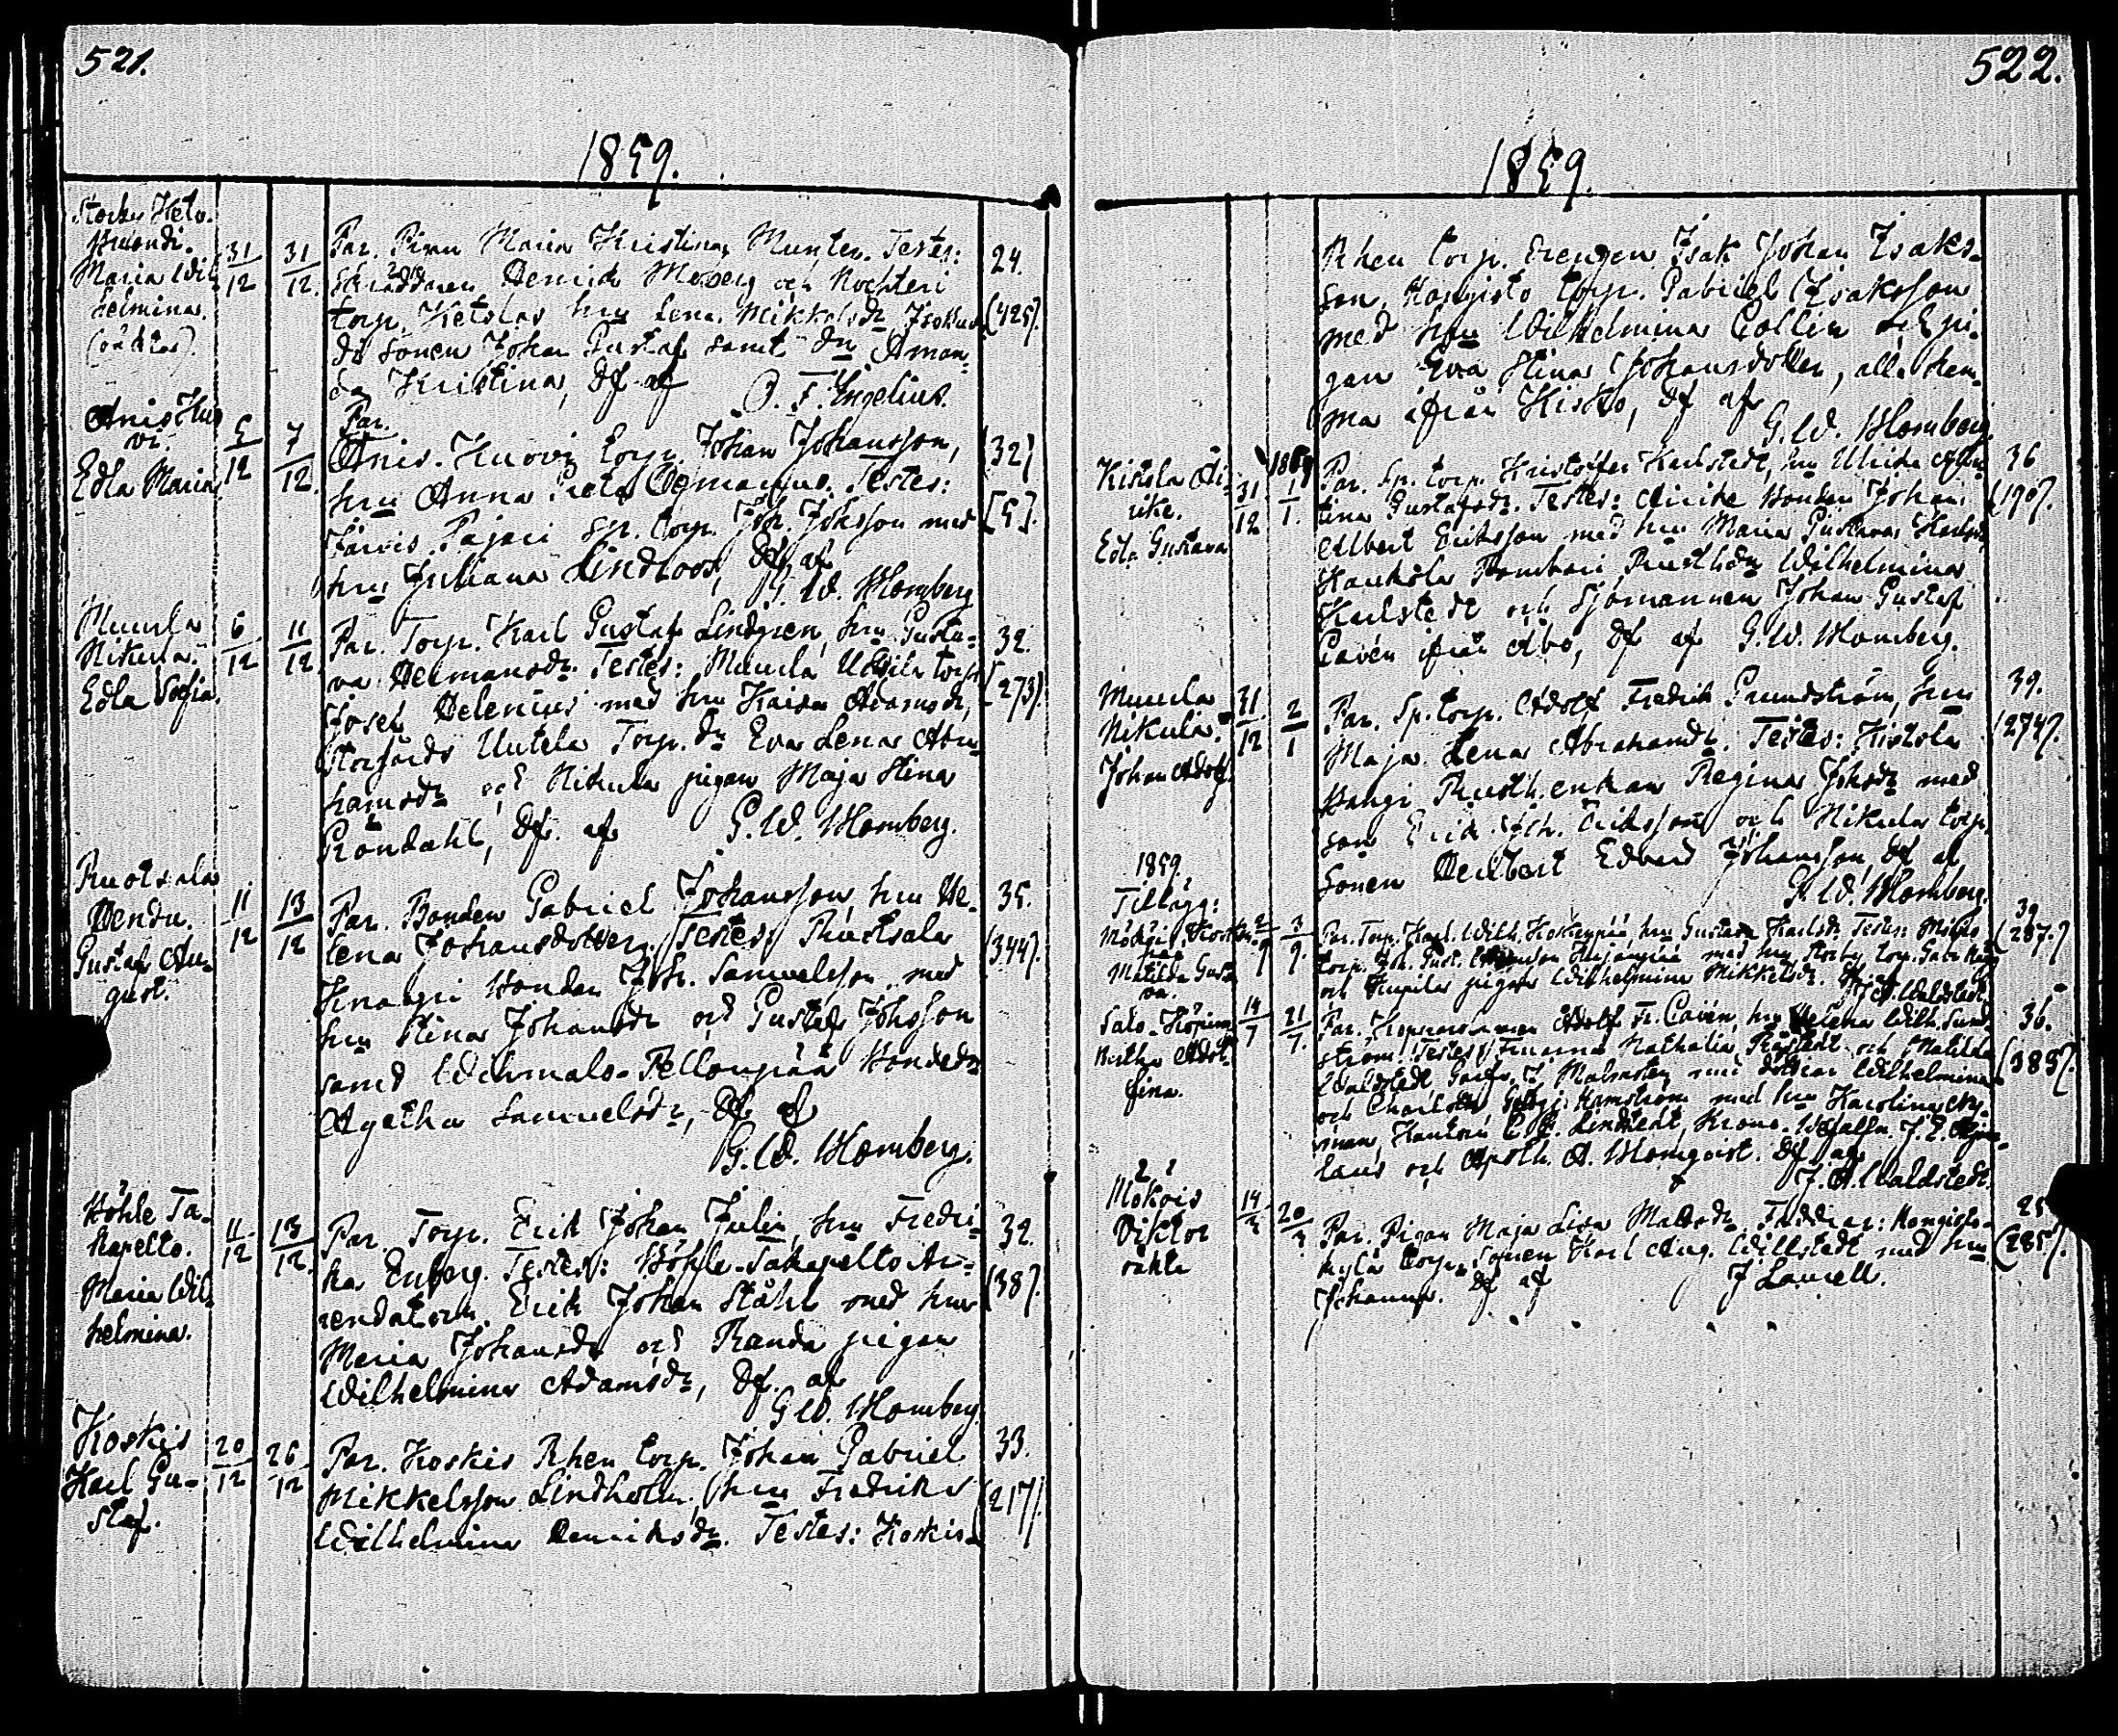 521.
1859.
Maria Wil
helmina.
(oäkta).
31
12
31
12.
Par. Pigan Maria Kristina Munter. Testes:
Skräddaren Henrik Moberg och Kochteri
torp. Ketolas hu Lena Mikkelsdr
sonen Johan Gustaf samt dn Aman-
da Kristina, Df af O. F. Ingelius.
24.
(425).
Anis Huo
vi.
Edla Maria
5
12
7
12.
Par.
Anis Huovi torp. Johan Johansson,
hu Anna Testes:
Järvis Pajari Sp. torp. Joh. Johsson med
hu Juliana Lindroos, Df af
G. W. Blomberg
32
[5].
Muurla
Nikula.
Edla Sofia.
6
12
11
12
Par. Torp. Karl Gustaf Lindgren, hu Gusta-
va Hermansdr. Testes: Muurla Uutela torp.
Josef Helenius med hu Kaisa Adamsdr,
Uutela Torp. dn Eva Lena Abra-
hamsdr och Nikula pigan Maja Stina
Gröndahl, Df. af G. W. Blomberg.
32.
273).
Ruotsala
Hendu.
Gustaf Au-
gust.
11
12
13
12
Par. Bonden Gabriel Johansson, hu He-
lena Johansdotter. Testes: Ruotsala
Knaapi Bonden Joh. Samuelsson med
hu Stina Johansdr och Gustaf Johsson
samt Wihmalo-Pellonpää Bondedn
Agatha Samuelsdr, Df af
G. W. Blomberg.
35.
(344).
Böhle Ta-
kapelto.
Maria Wil-
helmina.
11
12
13
12.
Par. Torp. Erik Johan Julin, hu Fredri-
ka Enberg. Testes: Böhle-Takapelto Ar-
rendatorn Erik Johan Ståhl med hu
Maria Johansdr och Randa pigan
Wilhelmina Adamsdr, Df. af
G. W. Blomberg
32.
(38).
Koskis
Karl Gu-
staf.
20
12
26
12
Par. Koskis Rhen torp. Johan Gabriel
Mikkelsson Lindholm, hu Fredrika
Wilhelmina Henriksdr. Testes: Koskis-
33.
(217).
522.
1859.
Rhen torp. drengen Isak Johan Isaks-
son, Kongisto torp. Gabriel Isaksson
med hu Wilhelmina Collin och pi-
gan Eva Stina Johansdotter, alla hem-
ma ifrån Kisko, Df af
G. W. Blomberg
Kistola Ai-
rike.
Edla Gustava
31
12
1860
1
1.
Par. Sp. torp. Kristoffer Karlstedt, hu Ulrika
tina Gustafsdr. Testes: Airike Bonden Johan
Albert Eriksson med hu Maria Gustava
Kaukola Pombari Rusthdn Wilhelmina
Karlstedt och Sjömannen Johan Gustaf
Cavén ifrån Åbo, Df af G. W. Blomberg.
36
(190).
Muurla
Nikula.
Johan Adolf.
31
12
2
1
Par. Sp. torp. Adolf Fredrik Grundström, hu
Maja Lena Abrahamsdr. Testes: Kistola
Rusth. enkan Regina Johsdr med
son Erik Joh. Eriksson och Nikula torp.
sonen Heribert Edvard Johansson, Df af
G. W. Blomberg.
39.
(274).
1859.
Tillägg:
Matilda Gusta
va.
3
9.
Par. Torp. Karl Wilh. Koskenpää hu Gustava Karlsdr. Testes:
och pigan Wilhelmina Mikkelsdr. Df af
J. A. Waldstedt.
39
(287.)
Salo-Köping
Bertha Adol-
fina.
14
7
21
7.
Par. Adolf Fr. Cavén, hu Helena Wilh. Sund-
ström. Testes: Fruarna Nathalia och Matilda
Waldstedt, Malmsten med döttrar Wilhelmina
och Charlotta, med hu Karolina Ny-
man, Kantorn Lindstedt,
och Apoth. A. Blomqvist. Df af
J. A. Waldstedt.
36.
(383).
Viktor
oäkta
14
20
Par. Pigan Maja Lisa Mattsdr. Faddrar: Kongisto-
kylä torp. sonen Karl Aug. Willstedt med hu
Johanna. Df af J Laurell.
25
(285).